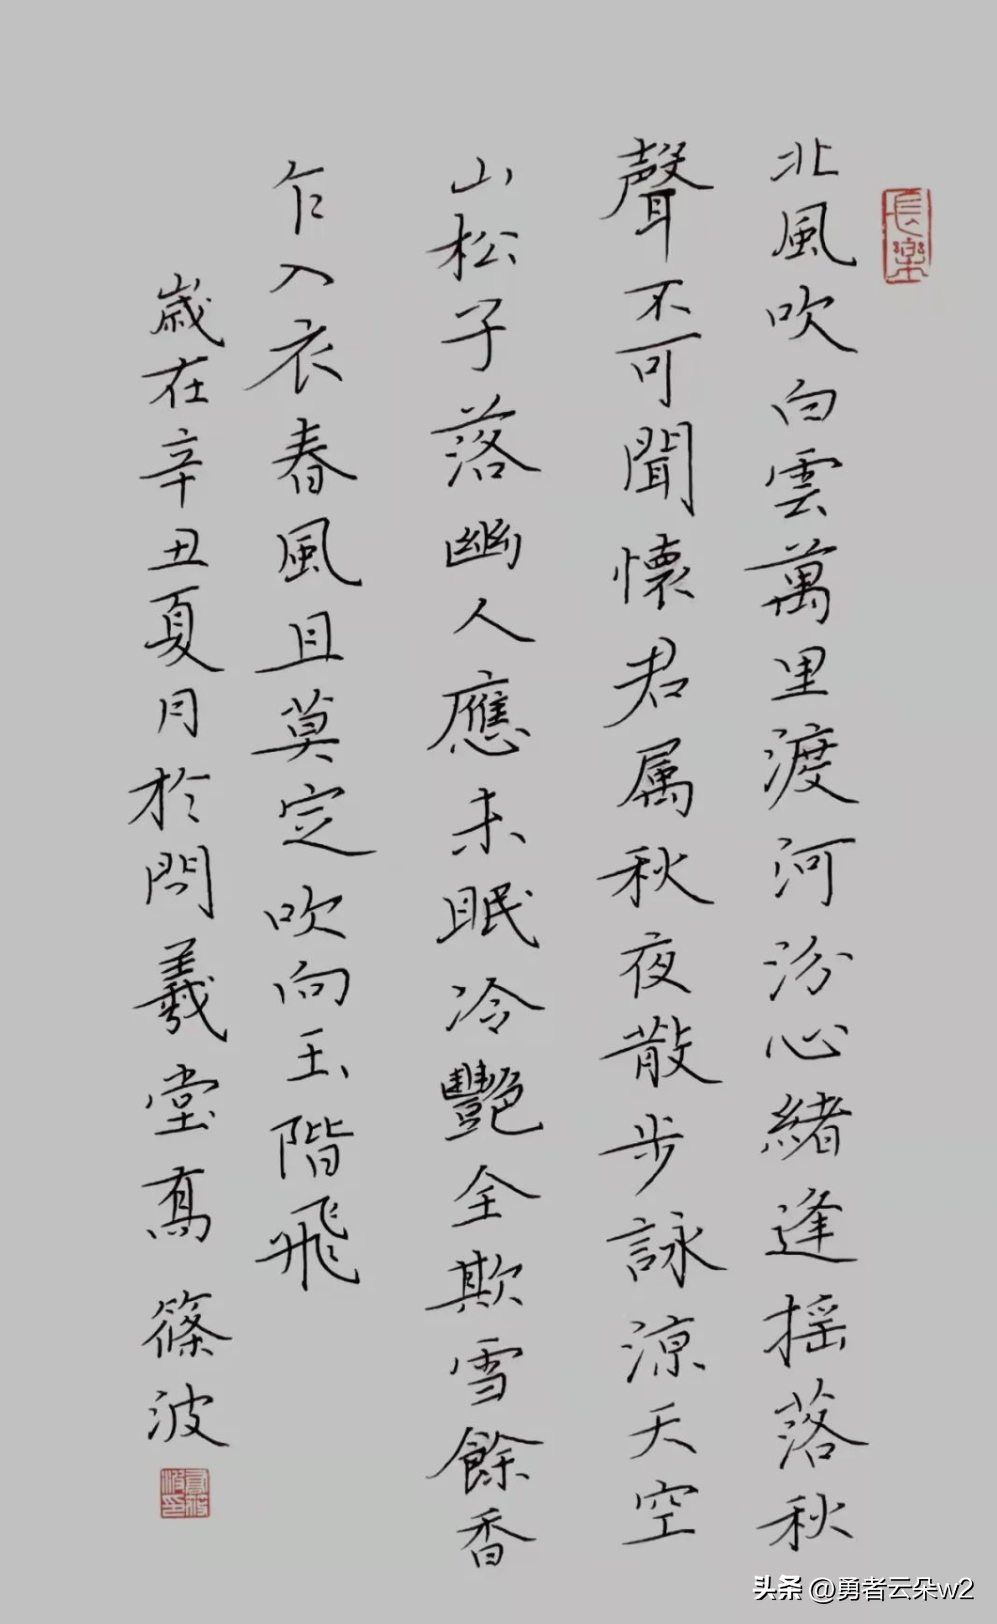 長樂
北風吹白雲萬里渡河汾心緒逢摇落秋
聲不可聞懷君属秋夜散步詠涼天空
山松子落幽人應未眠冷艷全欺雪餘香
乍入衣春風且莫定吹向玉階飛
歲在辛丑夏月於問羲堂髙篠波
头条 @勇者云朵w2